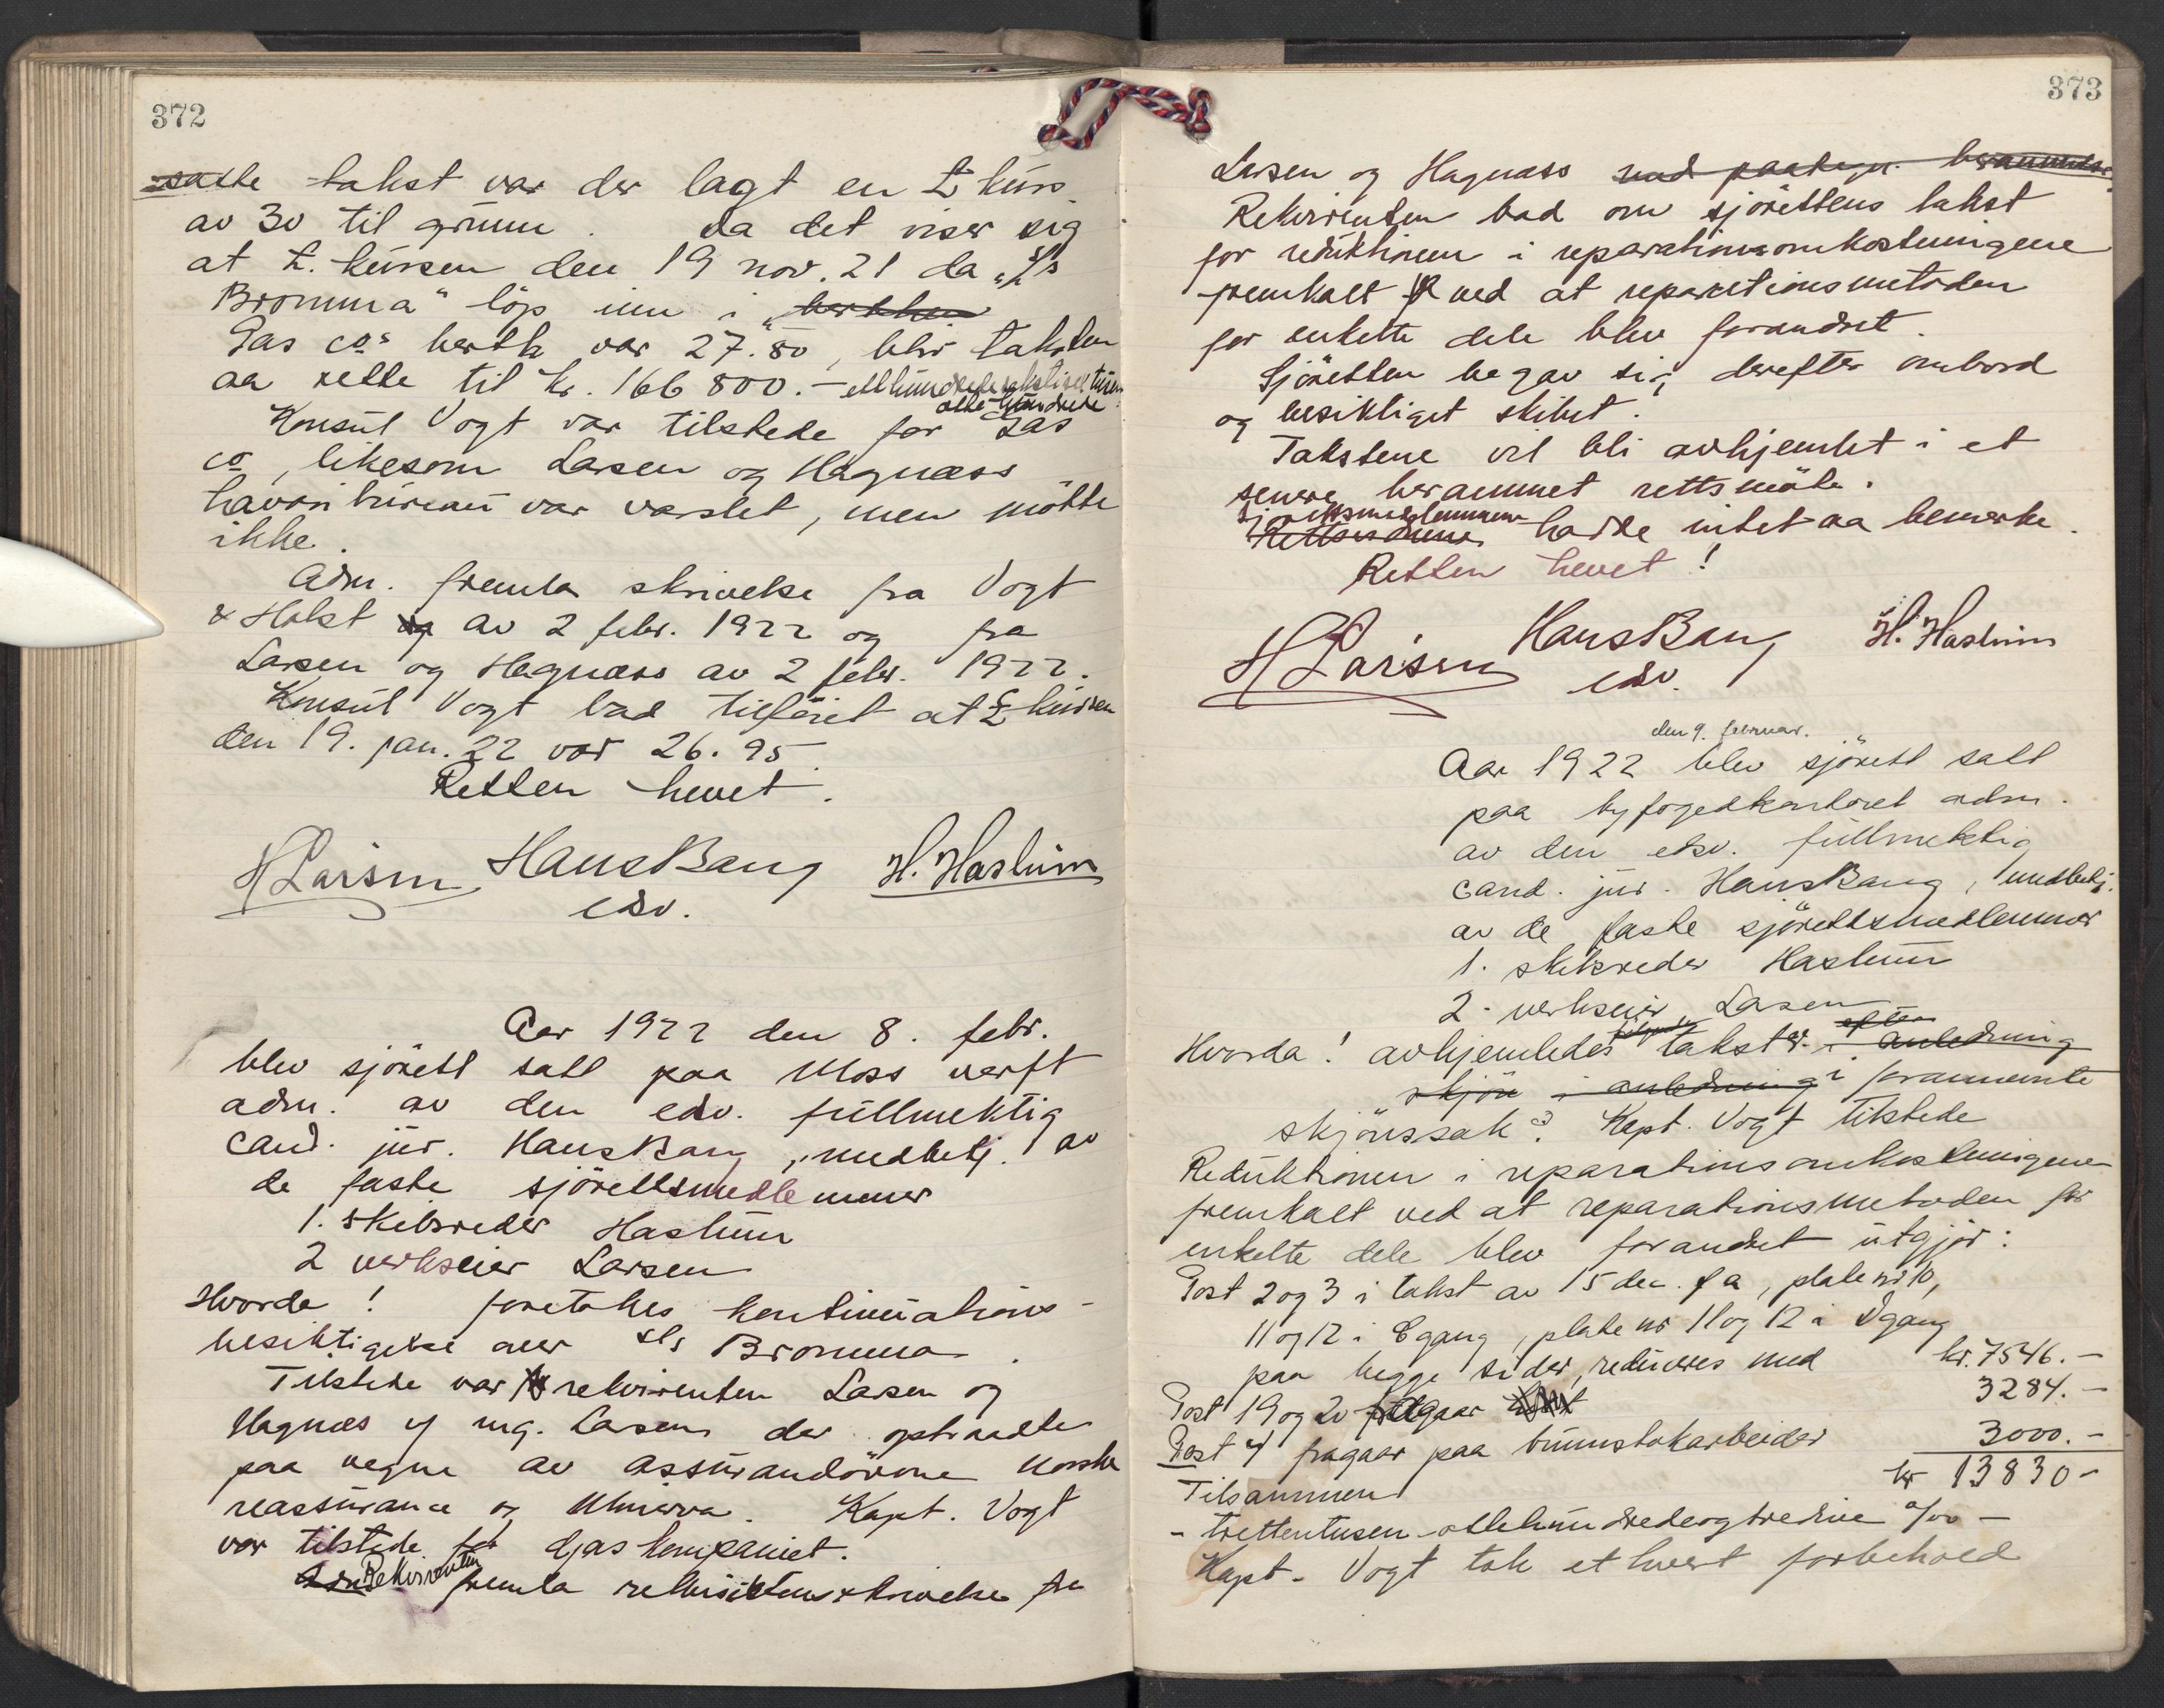 372
satte takst var der lagt en £ kurs
av 30 til grunn. Da det viser sig
at £. kursen den 19 nov. 21 da "s/s
Bromma" löp inn i
Gas cos verk var 27.80, blir taksten
aa rette til kr. 166 800.- etthundredeogsekstisekstusen
ottehundrede
Konsul Vogt var tilstede for Gas
co, likesom Larsen og Hagnæss
havaribureau var varslet, men mötte
ikke.
Adm. fremla skrivelse fra Vogt
& Holst av 2 febr. 1922 og fra
Larsen og Hagnæss av 2 febr. 1922.
Konsul Vogt bad tilföiet at £ kursen
den 19. jan. 22 var 26.95.
Retten hevet.
H Larsen Hans Bang H. Haslum
edsv.
Aar 1922 den 8. febr.
blev sjörett satt paa Moss verft
adm. av den edsv. fullmektig
cand. jur. Hans Bang, medbetj. av
de faste sjörettsmedlemmer
1. skibsreder Haslum
2 verkseier Larsen
Hvorda! foretokes kontinuations-
besiktigelse over s/s Bromma.
Tilstede var rekvirenten Larsen og
Hagnæs v/ ing. Larsen der optraadte
paa vegne av assurandörene Norske
reassurance og Minerva. Kapt. Vogt
var tilstede for Gjaskompaniet.
Rekvirenten
fremla rekvisitionsskrivelse fra
373
Larsen og Hagnæss med paategn. berammelse.
Rekvirenten bad om sjörettens takst
for reduktionen i reparationsomkostningene
fremkalt ved at reparationsmetoden
for enkelte dele blev forandret.
Sjöretten begav sig derefter ombord
og besiktiget skibet.
Takstene vil bli avhjemlet i et
senere berammet rettsmöte.
Sjörettsmedlemmene
hadde intet aa bemerke.
Retten hevet!
H Larsen Hans Bang H. Haslum
edsv.
den 9. februar.
Aar 1922 blev sjörett satt
paa byfogedkontoret adm.
av den edsv. fullmektig
cand. jur. Hans Bang, medbetj.
av de faste sjörettsmedlemmer
1. skibsreder Haslum
2. verkseier Larsen
følgende efter
Hvorda! avhjemledes takster i anledning
skjön i anledning i forannevnte
skjönssak. Kapt. Vogt tilstede
Reduktionen i reparationsomkostningene
fremkalt ved at reparationsmetoden for
enkelte dele blev forandret utgjör:
Post 2 og 3 i takst av 15 dec. f a, plate nr 10,
11 og 12 i C gang, plate nr 11 og 12 i D gang
paa begge sider, reduceres med kr. 7546.-
Post 19 og 20 fragaar 3284.-
Post 4 fragaar paa bunnstokarbeider 3000.-
Tilsammen kr 13830-
- trettentusen-ottehundredeogtredive o/oo -
Kapt. Vogt tok ethvert forbehold